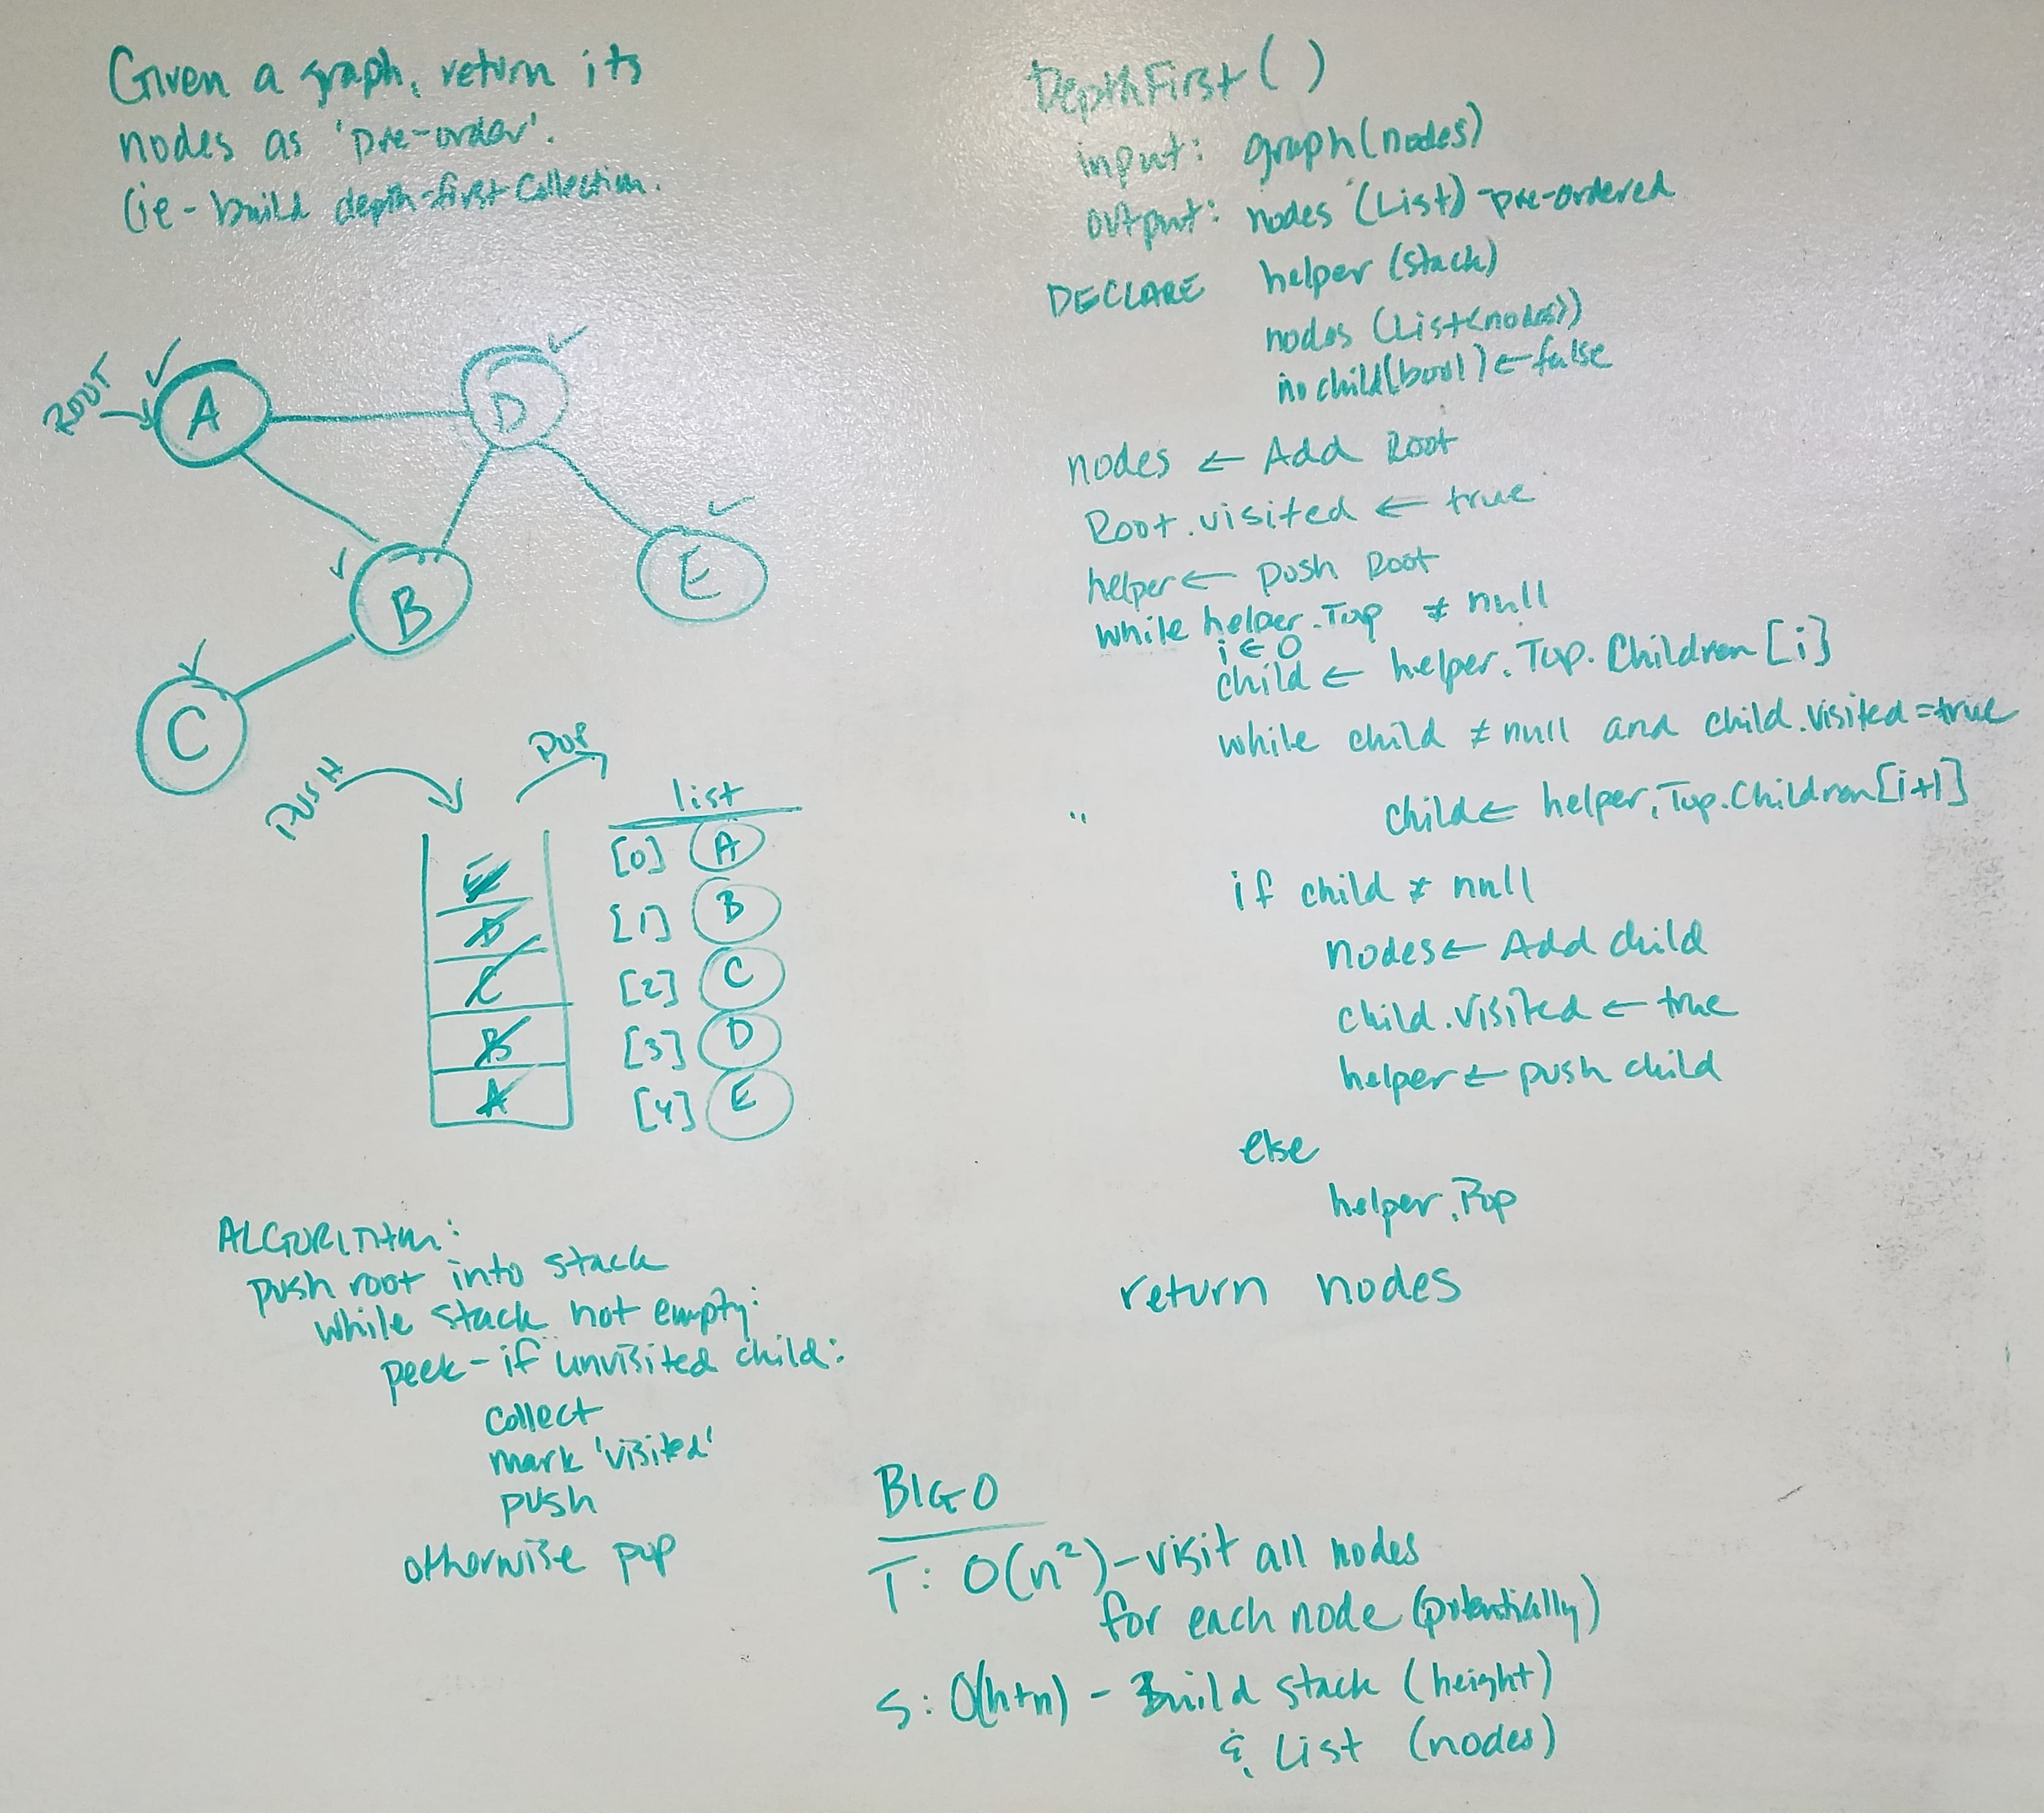 Given a graph, return its
nodes as 'pre-order'.
(ie - build depth-first collection.
ROOT
A
D
B
E
C
PUSH
POP
list
E
D
C
B
A
[0] A
[1] B
[2] C
[3] D
[4] E
ALGORITHM:
push root into stack
while stack not empty:
peek - if unvisited child:
collect
mark 'visited'
push
otherwise pop
DepthFirst()
input: graph(nodes)
output: nodes (List) - pre-ordered
DECLARE helper (stack)
nodes (List<nodes>)
no child (bool) ← false
nodes ← Add Root
Root.visited ← true
helper ← push Root
while helper.Top ≠ null
i ← 0
child ← helper.Top.Children[i]
while child ≠ null and child.visited = true
child ← helper.Top.Children[i+1]
if child ≠ null
nodes ← Add child
child.visited ← true
helper ← push child
else
helper.Pop
return nodes
BIG O
T: O(n²) - visit all nodes
for each node (potentially)
S: O(h+n) - Build stack (height)
& List (nodes)